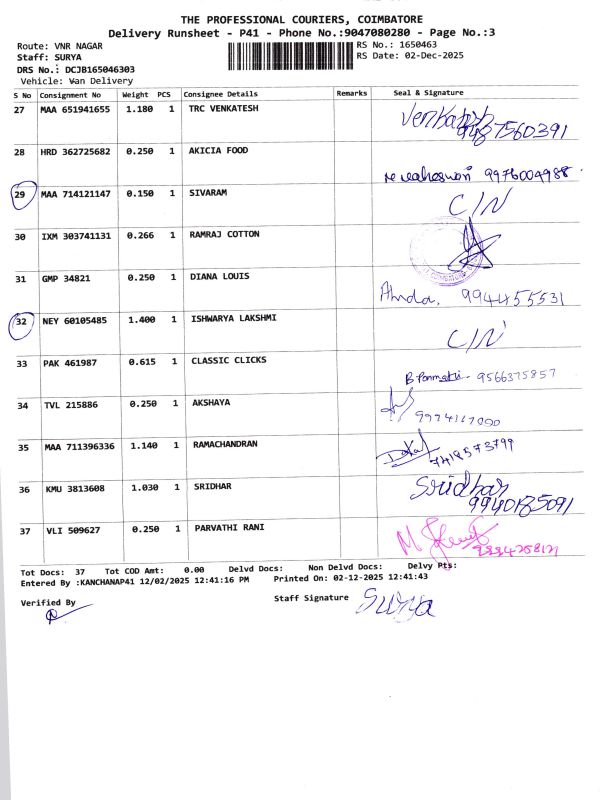 THE PROFESSIONAL COURIERS, COIMBATORE
Delivery Runsheet - P41 - Phone No.:9047080280 - Page No.:3
Route: VNR NAGAR RS No.: 1650463
Staff: SURYA RS Date: 02-Dec-2025
DRS No.: DCJB165046303
Vehicle: Van Delivery
S No Consignment No Weight PCS Consignee Details Remarks Seal & Signature
27 MAA 651941655 1.180 1 TRC VENKATESH Venkatesh
9487560391
28 HRD 362725682 0.250 1 AKICIA FOOD 9976004988
29 MAA 714121147 0.150 1 SIVARAM C/N
30 IXM 303741131 0.266 1 RAMRAJ COTTON
31 GMP 34821 0.250 1 DIANA LOUIS 9944555531
32 NEY 60105485 1.400 1 ISHWARYA LAKSHMI C/N
33 PAK 461987 0.615 1 CLASSIC CLICKS 9566375857
34 TVL 215886 0.250 1 AKSHAYA
35 MAA 711396336 1.140 1 RAMACHANDRAN
36 KMU 3813608 1.030 1 SRIDHAR Sridhar
9940185091
37 VLI 509627 0.250 1 PARVATHI RANI
Tot Docs: 37 Tot COD Amt: 0.00 Delvd Docs: Non Delvd Docs: Delvy Pts:
Entered By :KANCHANAP41 12/02/2025 12:41:16 PM Printed On: 02-12-2025 12:41:43
Verified By Staff Signature Surya